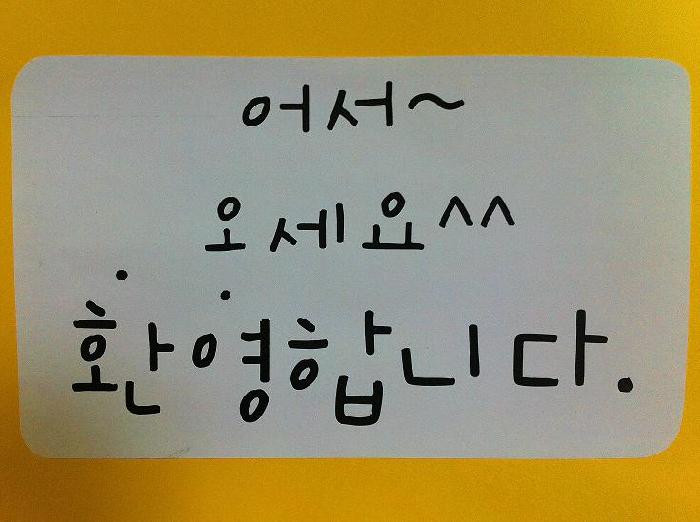 어서~
오세요^^
환영합니다.